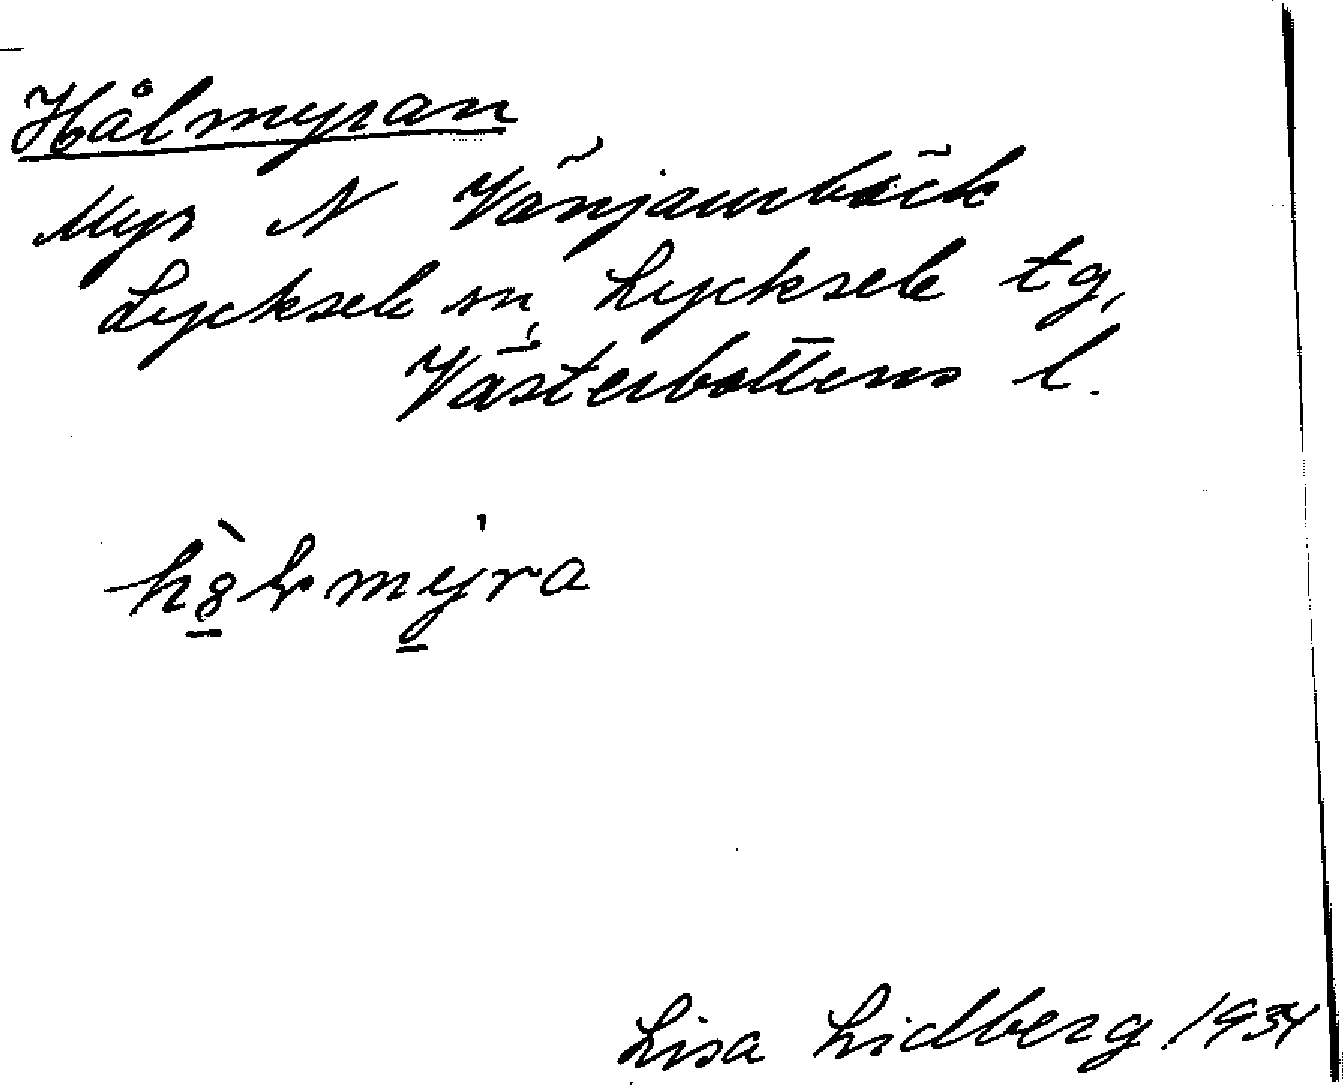 Hålmyran
Myr N Vänjaurbäck
Lycksele sn, Lycksele tg,
Västerbottens l.
Lisa Lidberg 1934